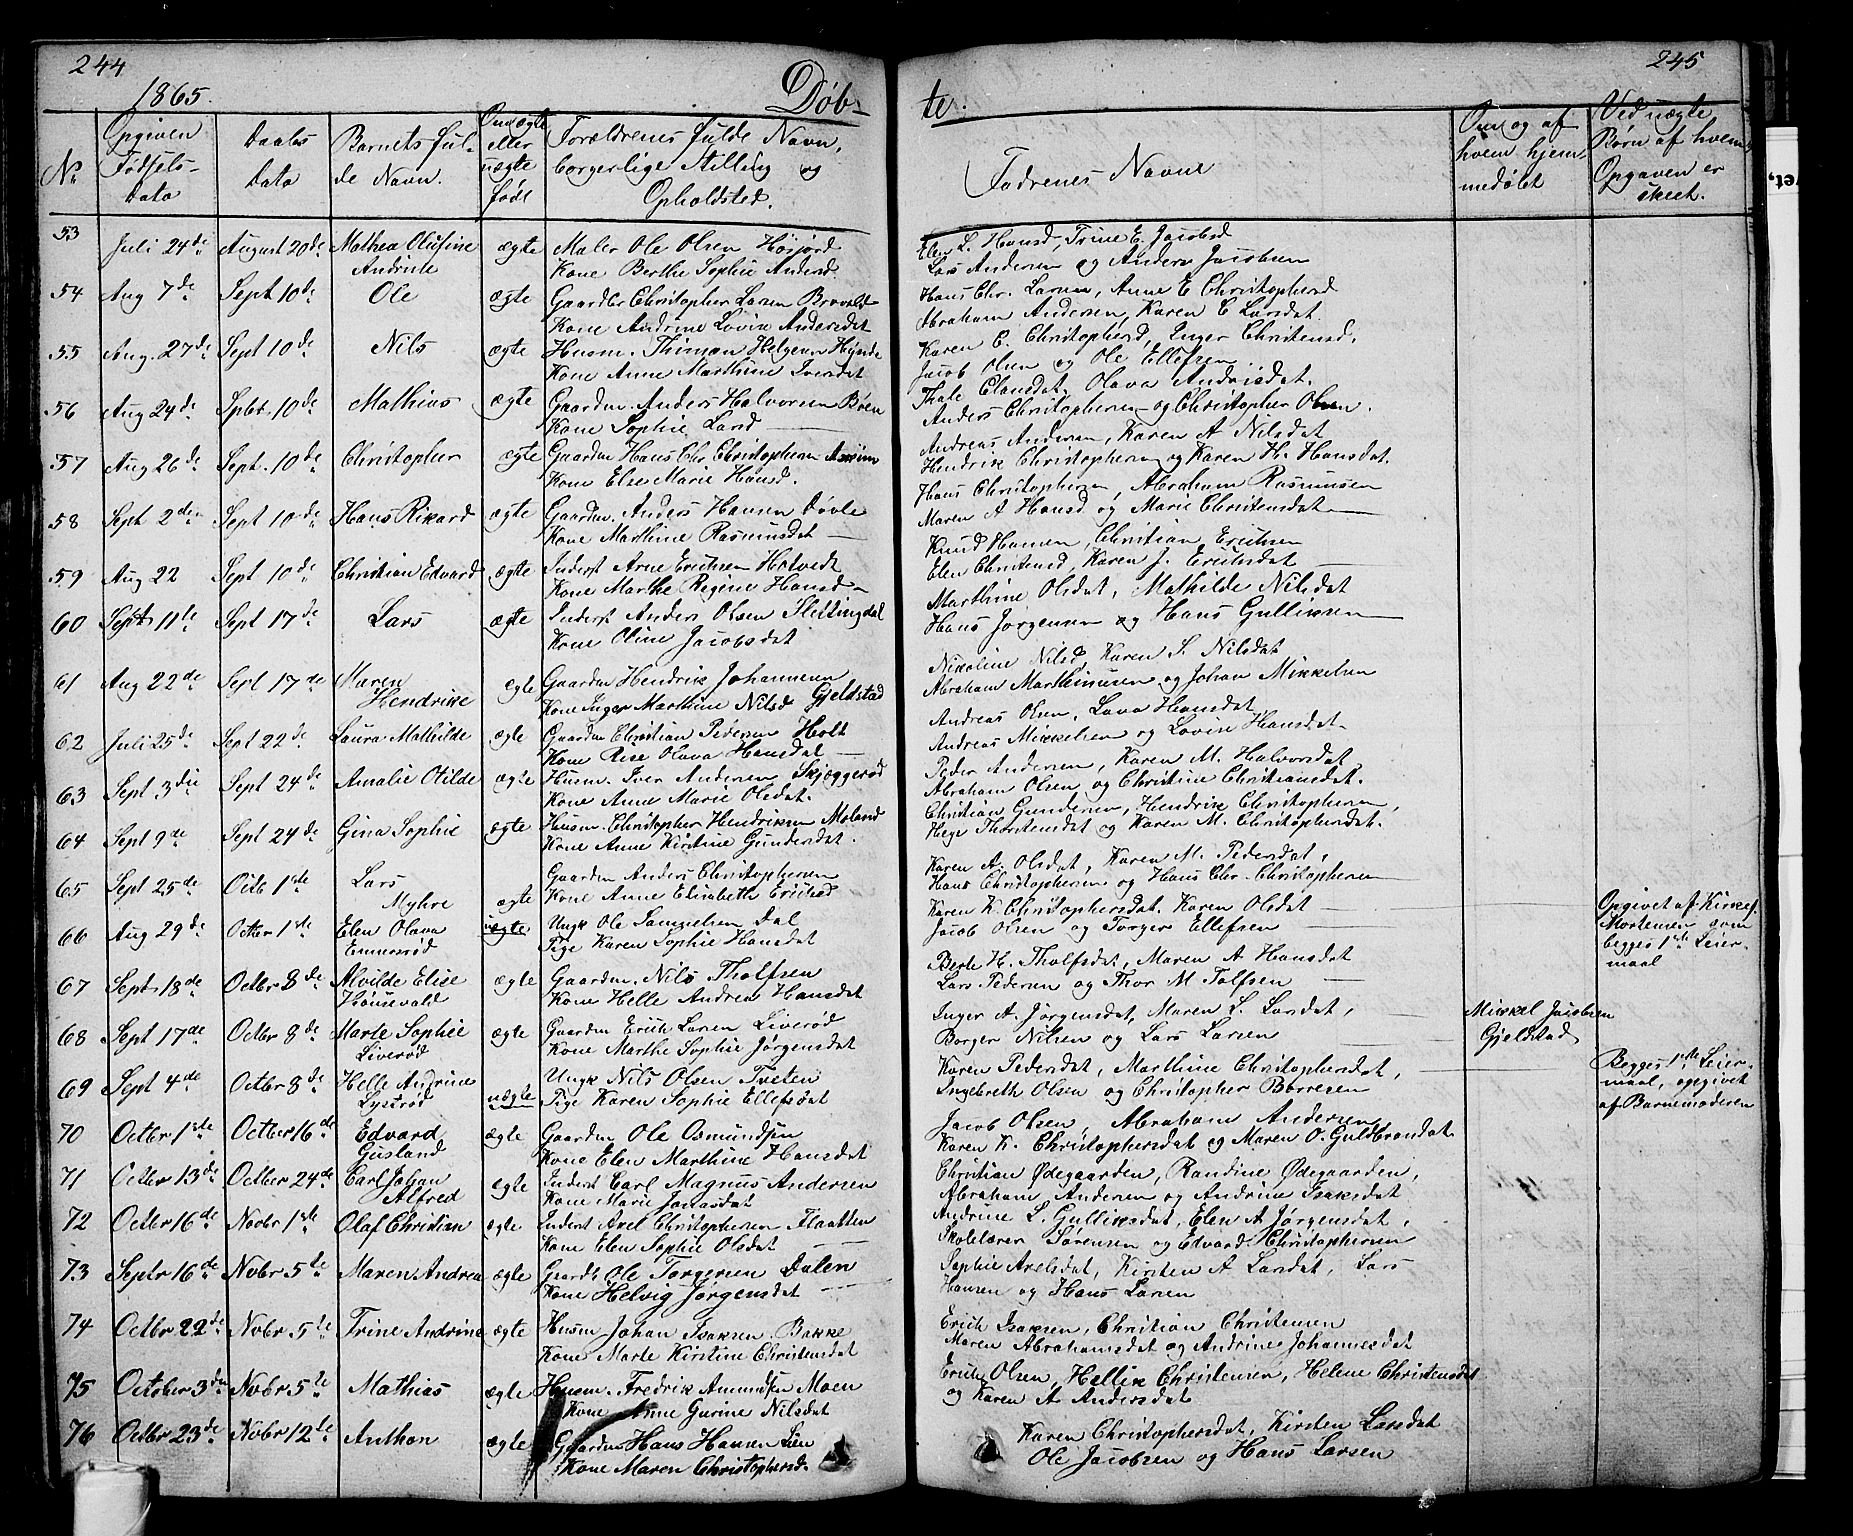 244
1865.
Døb-
No
Opgiven Fødsels-Data
Daabs Data
Barnets fulde Navn.
Om ægte eller uægte født
Forældrenes fulde Navn, borgerlige Stilling og Opholdsted.
53 Juli 24de August 20de Mathea Olufine ægte Maler Ole Olsen
Andrine Kone Berthe Sophie Andersd.
54 Aug 7de Sept 10de Ole ægte Gaardbr Christopher Larsen
Kone Andrine Lovise Andersdat
55 Aug. 27de Sept 10de Nils ægte Husm. Thiman Helgesen
Kone Anne Marthine Iversdat
56 Aug 24de Sept. 10de Mathias ægte Gaardm. Anders Halvorsen Bøen
Kone Sophie Larsd
57 Aug 26de Sept. 10de Christopher ægte Gaardm Hans Chr Christophersen
Kone Else Marie Hansd.
58 Sept 2den Sept 10de Hans Rikard ægte Gaardm. Anders Hansen Døvle
Kone Marthine Rasmusdat
59 Aug 22 Sept 10de Christian Edvard ægte Inderst Arne Erichsen Hotvedt
Kone Marthe Regine Hansd
60 Sept 11te Sept 17de Lars ægte Inderst Anders Olsen Slettingdal
Kone Oline Jacobsdat
61 Aug 22de Sept 17de Maren ægte Gaardm Hendrik Johannesen
Hendrike Kone Inger Marthine Nilsd Gjeldstad
62 Juli 25de Sept 22de Laura Mathilde ægte Gaardm Christian Pedersen Holt
Kone Rise Olava Hansdat
63 Sept 3die Sept 24de Amalie Otilde ægte Husm. Iver Andersen Skjøggerød
Kone Anne Marie Olsdat.
64 Sept 9de Sept 24de Gina Sophie ægte Husm. Christopher Hendriksen Moland
Kone Anne Kirstine Gundersdat.
65 Sept 25de Octb 1ste Lars Gaardm Anders Christophersen
Myhre ægte Kone Anne Elisabeth Erichsd
66 Aug 29de Octbr 1ste Elen Olava uægte Ungk Ole Samuelsen Dal
Emmerød Pige Karen Sophie Hansdat
67 Sept. 18de Octbr 8de Alvilde Elise ægte Gaardm. Nils Tholfsen
Kone Helle Andrea Hansdat
68 Sept 17de Octbr 8de Marte Sophie ægte Gaardm Erich Larsen Liverød
Liverød Kone Marthe Sophie Jørgensdat
69 Sept 4de Octbr 8de Helle Andrine Ungk Nils Olsen Tveten
Lystrød uægte Pige Karen Sophie Ellefsdat
70 Octbr 1ste Octber 16de Edvard ægte Gaardm Ole Osmundsen
Gusland Kone Elen Marthine Hansdat
71 Octbr 13de Octber 24de Carl Johan ægte Inderst Carl Magnus Andersen
Alfred Kone Marie Jonasdat
72 Octbr 16de Novbr 1ste Olaf Christian ægte Inderst Axel Christophersen Flaatten
Kone Elen Sophie Olsdat
73 Septr 16de Novbr 5te Maren Andrea ægte Gaardb Ole Torgersen Dalen
Kone Helvig Jørgensdat
74 Octbr 22de Nobr 5te Trine Andrine ægte Husm Johan Isaksen Bakke
Kone Marte Kirstine Christensdat
75 October 3die Nobr 5te Mathias ægte Husm. Fredrik Amundsen Moen
Kone Anne Gurine Nilsdat
76 Octbr 23de Nobr 12te Anthon ægte Gaardm Hans Hansen Lien
Kone Maren Christophersd.
245
te.
Fadrenes Navne
Om og af hvem hjemmedøbt
Ved uægte Børn af hvem Opgaven er skeet.
Elen L. Hansd, Trine E. Jacobsd
Lars Andersen og Anders Jacobsen
Hans Chr. Larsen, Anne E Christophersd
Abraham Andersen, Karen E Larsdat.
Karen E. Christophersd, Inger Christensd.
Jacob Olsen og Ole Ellefsen
Thale Clausdat, Olava Andrisdat.
Anders Christophersen og Christopher Olsen.
Andreas Andersen, Karen A Nilsdat
Hendrik Christophersen og Karen H. Hansdat.
Hans Christophersen, Abraham Rasmussen
Maren A Hansd og Marie Christensdat
Knud Hansen, Christian Erichsen
Elen Christensd, Karen J. Erichsdat
Marthine Olsdat, Mathilde Nilsdat
Hans Jørgensen og Hans Gulliksen
Nikoline Nilsd, Karen S. Nilsdat
Abraham Marthinusen og Johan Mikkelsen
Andreas Olsen, Lava Hansdat
Andreas Mikkelsen og Lovise Hansdat
Peder Andersen, Karen M. Halvorsdat,
Abraham Olsen og Christine Christiansdat.
Christian Gundersen, Hendrik Christophersen,
Hege Thorstensdat og Karen M. Christophersdat.
Karen A. Olsdat, Karen M. Pedersdat,
Hans Christophersen og Hans Chr. Christophersen
Karen K. Christophersdat. Karen Olsdat
Jacob Olsen og Torger Ellefsen
Opgivet af Kirkes.
Mortensen som
begges 1ste Leier-
maal
Berte H. Tholfsdat, Maren A Hansdat
Lars Pedersen og Thor M. Tolfsen
Inger A. Jørgensdat, Maren L. Larsdat,
Borger Nilsen og Lars Larsen
Mikkel Jacobsen
Gjeldstad
Karen Pedersdat, Marthine Christophersdat,
Ingebreth Olsen og Christopher Borresen
Begges 1ste Leier-
maal, opgivet
af Barnemoderen
Jacob Olsen, Abraham Andersen,
Karen K. Christophersdat og Maren O. Guldbrandat.
Christian Ødegaarden, Randine Ødegaarden,
Abraham Andersen og Andrine Isaksdat
Andrine L. Gulliksdat, Elen A Jørgensdat,
Skolelærer Sørensen og Edvard Christophersen
Sophie Axelsdat, Kirsten A Larsdat, Lars
Hansen og Hans Larsen
Erich Isaksen, Christian Christensen
Maren Abrahamsdat og Andrine Johannesdat
Erich Olsen, Hellik Christensen, Helene Christensdat
og Karen A Andersdat
Karen Christophersdat, Kirsten Larsdat
Ole Jacobsen og Hans Larsen